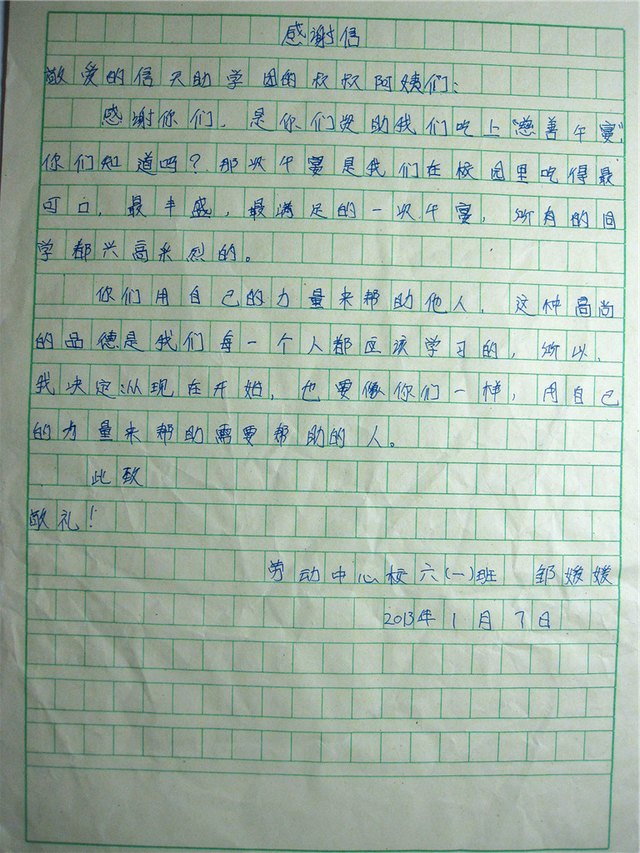 感谢信
敬爱的信天助学团的叔叔阿姨们：
感谢你们，是你们资助我们吃上“慈善午宴”，
你们知道吗？那次午宴是我们在校园里吃得最
可口，最丰盛，最满足的一次午宴，所有的同
学都兴高采烈的。
你们用自己的力量来帮助他人，这种高尚
的品德是我们每一个人都应该学习的，所以，
我决定：从现在开始，也要像你们一样，用自己
的力量来帮助需要帮助的人。
此致
敬礼！
劳动中心校六（一）班 邹媛媛
2013年1月7日